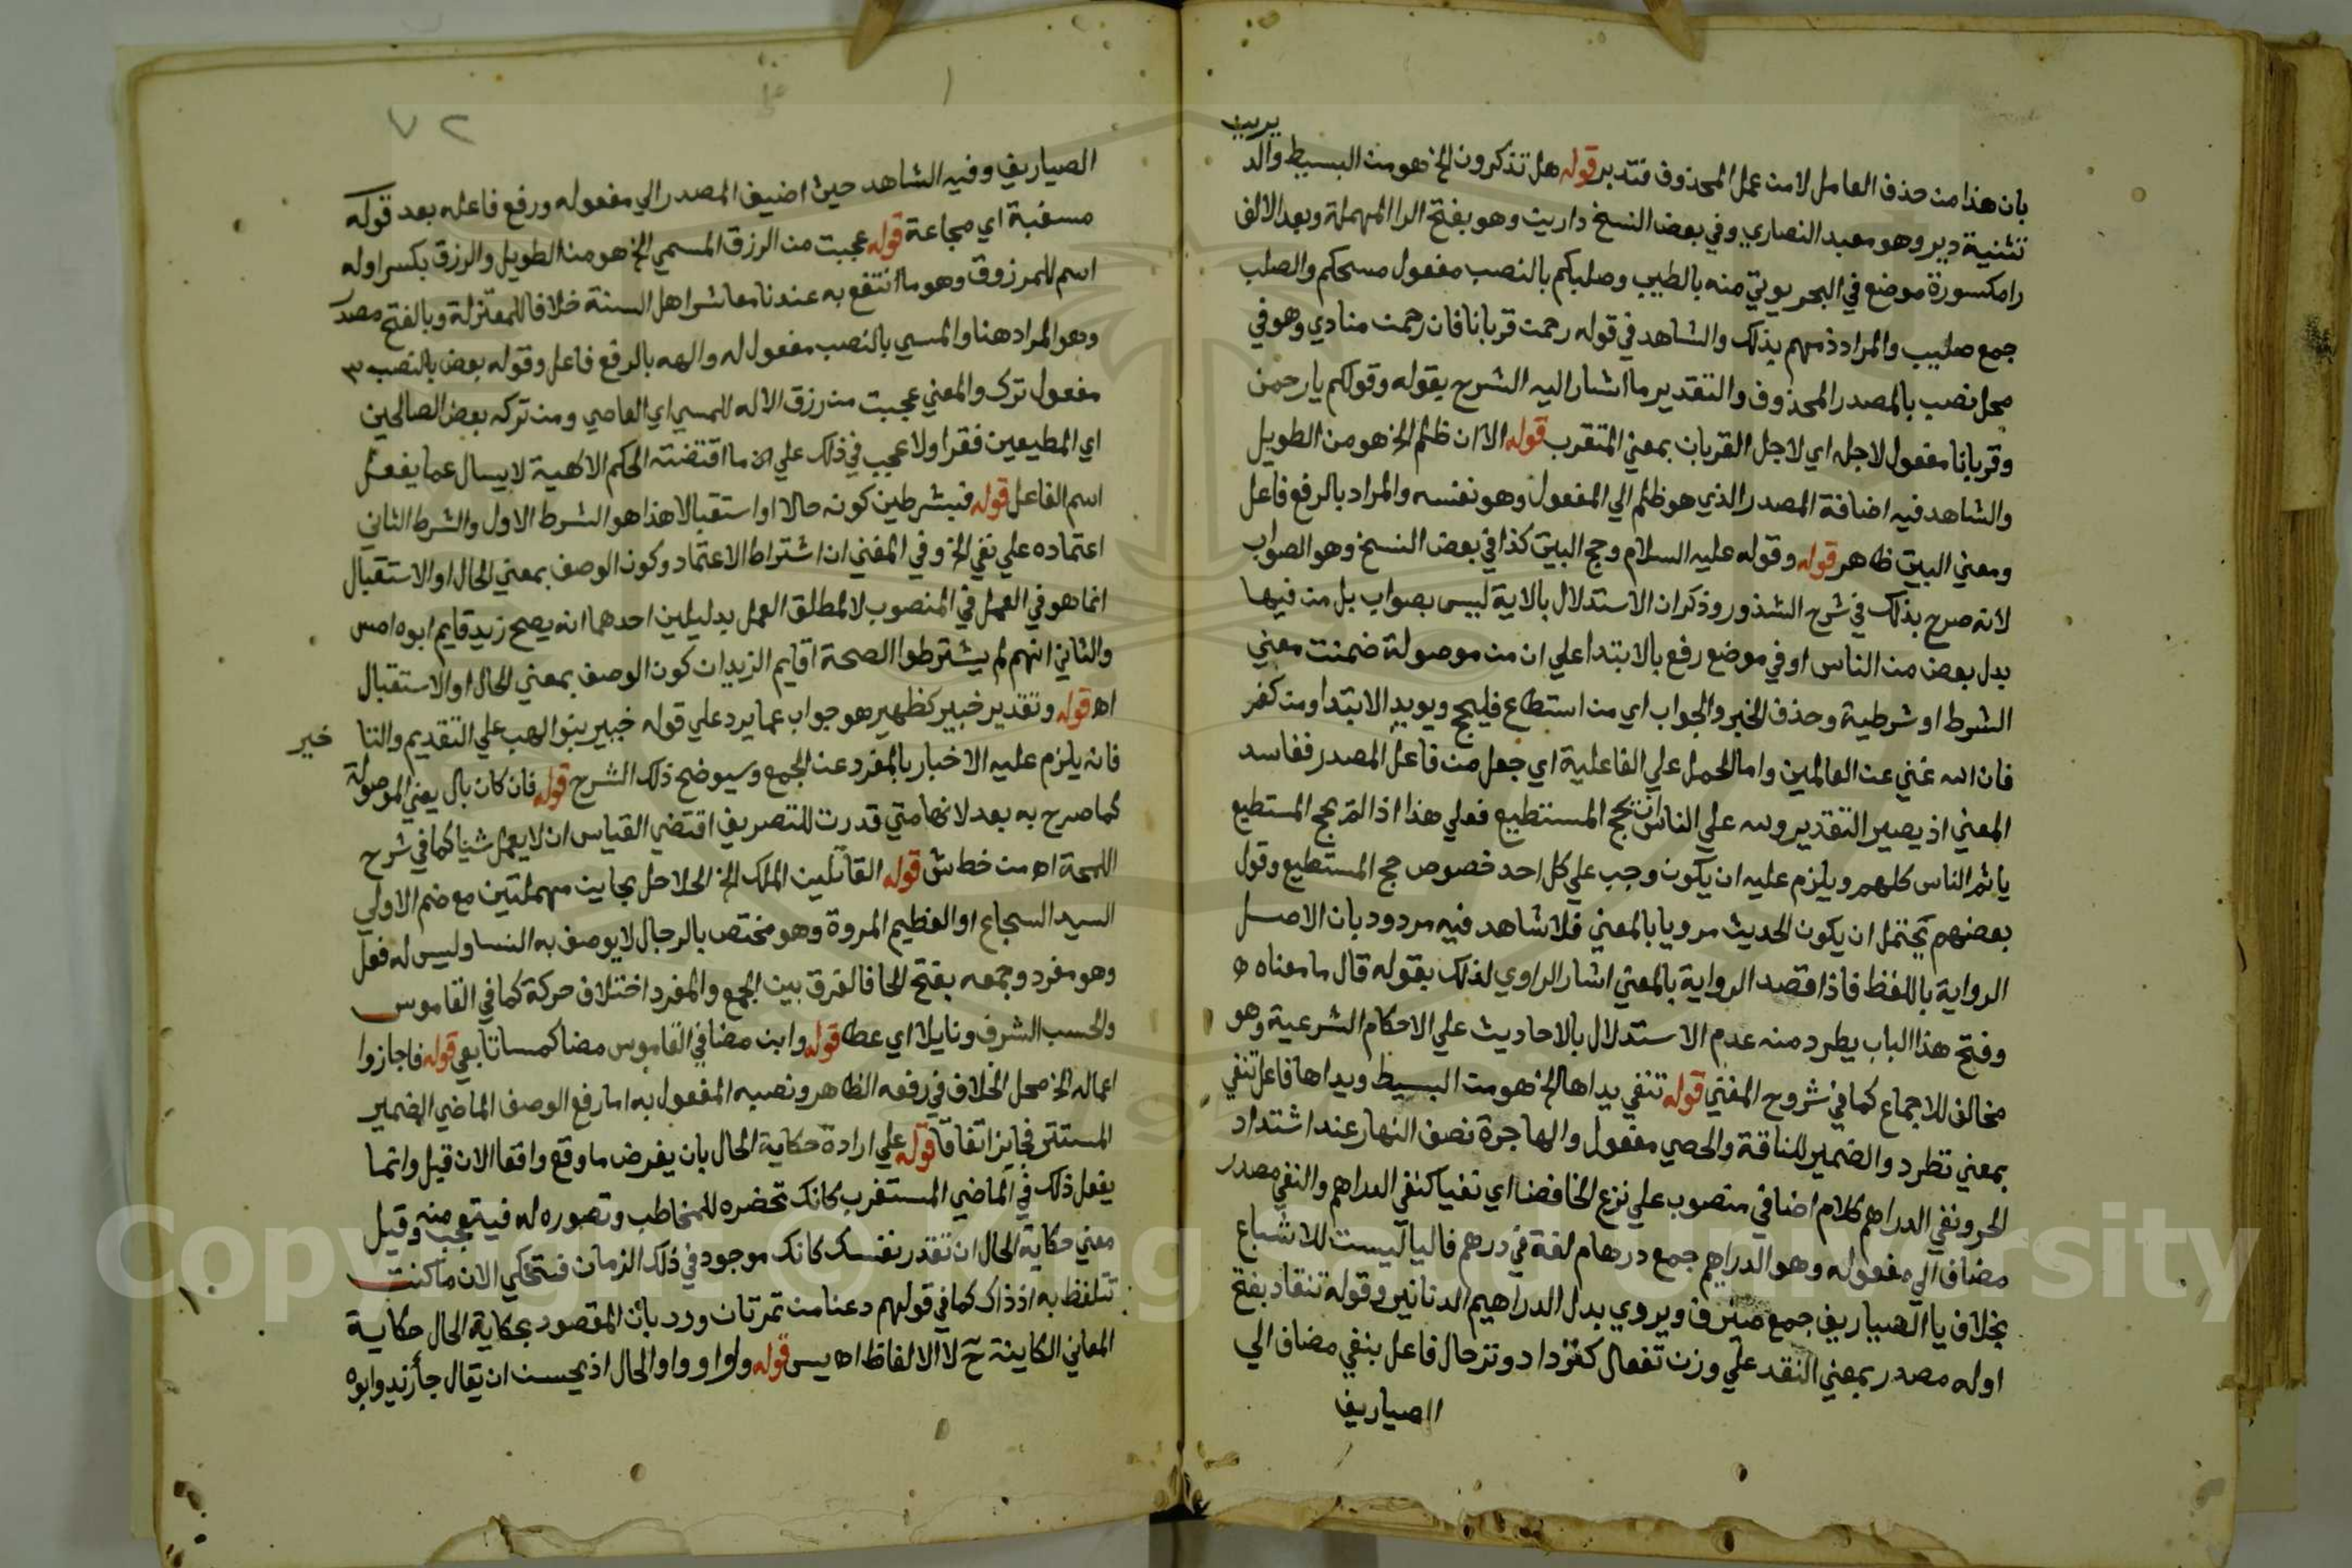 يريب
بان هذا من حذف العامل لا من عمل المحذوف فتدبر قوله هل تذكرون الخ هو من البسيط والد
تثنية دير وهو معبد النصاري وفي بعض النسخ دارين وهو بفتح الرا المهملة وبعد الالف
را مكسورة موضع في البحر يوتي منه بالطيب وصلبكم بالنصب مفعول مسحكم والصلب
جمع صليب والمراد ذمهم بذلك والشاهد في قوله رحمن قربانا فان رحمن منادي وهو في
محل نصب بالمصدر المحذوف والتقدير ما اشار اليه الشرح بقوله وقولكم يا رحمن
وقربانا مفعول لاجله اي لاجل القربان بمعني المتقرب قوله الا ان ظلم الخ هو من الطويل
والشاهد فيه اضافة المصدر الذي هو ظلم الي المفعول وهو نفسه والمراد بالرفع فاعل
ومعني البيت ظاهر قوله وقوله عليه السلام وحج البيت كذا في بعض النسخ وهو الصواب
لانه صرح بذلك في شرح الشذور وذكر ان الاستدلال بالاية ليس بصواب بل من فيها
بدل بعض من الناس او في موضع رفع بالابتدا علي ان من موصولة ضمنت معني
الشرط او شرطية وحذف الخبر والجواب اي من استطاع فليحج ويويد الابتدا ومن كفر
فان الله غني عن العالمين واما الحمل علي الفاعلية اي جعل من فاعل المصدر ففاسد
المعني اذ يصير التقدير ولله علي الناس ان يحج المستطيع فعلي هذا اذا لم يحج المستطيع
ياثم الناس كلهم ويلزم عليه ان يكون وجب علي كل احد خصوص حج المستطيع وقول
بعضهم يحتمل ان يكون الحديث مرويا بالمعني فلا شاهد فيه مردود بان الاصل
الرواية باللفظ فاذا قصد الرواية بالمعني اشار الراوي لذلك بقوله قال ما معناه
وفتح هذا الباب يطرد منه عدم الاستدلال بالاحاديث علي الاحكام الشرعية وهو
مخالف للاجماع كما في شروح المغني قوله تنفي يداها الخ هو من البسيط ويداها فاعل تنفي
بمعني تطرد والضمير للناقة والحصي مفعول والهاجرة نصف النهار عند اشتداد
الحر ونفي الدراهم كلام اضافي منصوب علي نزع الخافض اي نفيا كنفي الدراهم والنفي مصدر
مضاف الي مفعوله وهو الدراهيم جمع درهام لغة في درهم فاليا ليست للاشباع
بخلاف يا الصياريف جمع صيرف ويروي بدل الدراهيم الدنانير وقوله تنقاد بفتح
اوله مصدر بمعني النقد علي وزن تفعال كتزداد وترحال فاعل بنفي مضاف الي
الصياريف
٧٢
الصياريف وفيه الشاهد حيث اضيف المصدر الي مفعوله ورفع فاعله بعد قوله
مسغبة اي مجاعة قوله عجبت من الرزق المسمي الخ هو من الطويل والرزق بكسر اوله
اسم للمرزوق وهو ما انتفع به عندنا معاشر اهل السنة خلافا للمعتزلة وبالفتح مصدر
وهو المراد هنا والمسي بالنصب مفعول له والهه بالرفع فاعل وقوله بعض بالنصب
مفعول ترك والمعني عجبت من رزق الاله للمسي اي العاصي ومن تركه بعض الصالحين
اي المطيعين فقرا ولا عجب في ذلك علي ان ما اقتضته الحكم الالهية لا يسال عما يفعل
اسم الفاعل قوله فبشرطين كونه حالا او استقبالا هذا هو الشرط الاول والشرط الثاني
اعتماده علي نفي الخ وفي المغني ان اشتراط الاعتماد وكون الوصف بمعني الحال او الاستقبال
انما هو في العمل في المنصوب لا لمطلق العمل بدليلين احدهما انه يصح زيد قايم ابوه امس
والثاني انهم لم يشترطوا الصحة اقايم الزيدان كون الوصف بمعني الحال او الاستقبال
اه قوله وتقدير خبير كظهير هو جواب عما يرد علي قوله خبير بنو الهب علي التقديم والتا
خير
فانه يلزم عليه الاخبار بالمفرد عن الجمع وسيوضح ذلك الشرح قوله فان كان بال يعني الموصولة
كما صرح به بعد لانها متي قدرت للتعريف اقتضي القياس ان لا يعمل شيا كما في شرح
اللمحة اه من خط ش قوله القاتلين الملك الخ الحلاحل بحاين مهملتين مع ضم الاولي
السيد الشجاع او العظيم المروة وهو مختص بالرجال لا يوصف به النسا وليس له فعل
وهو مفرد وجمعه بفتح الحا فالفرق بين الجمع والمفرد اختلاف حركة كما في القاموس
والحسب الشرف ونايلا اي عطا قوله وابن مضا في القاموس مضا كمسا تابعي قوله فاجازوا
اعماله الخ محل الخلاف في رفعه الظاهر ونصبه المفعول به اما رفع الوصف الماضي الضمير
المستتر فجايز اتفاقا قوله علي ارادة حكاية الحال بان يفرض ما وقع واقعا الان قيل وانما
يفعل ذلك في الماضي المستغرب كانك تحضره للمخاطب وتصوره له فيتعجب منه وقيل
معني حكاية الحال ان تقدر نفسك كانك موجود في ذلك الزمان فتحكي الان ما كنت
تتلفظ به اذ ذاك كما في قولهم دعنا من تمرتان ورد بان المقصود بحكاية الحال حكاية
المعاني الكاينة ح لا الالفاظ اه يس قوله والواو واو الحال اذ يحسن ان يقال جا زيد وابوه